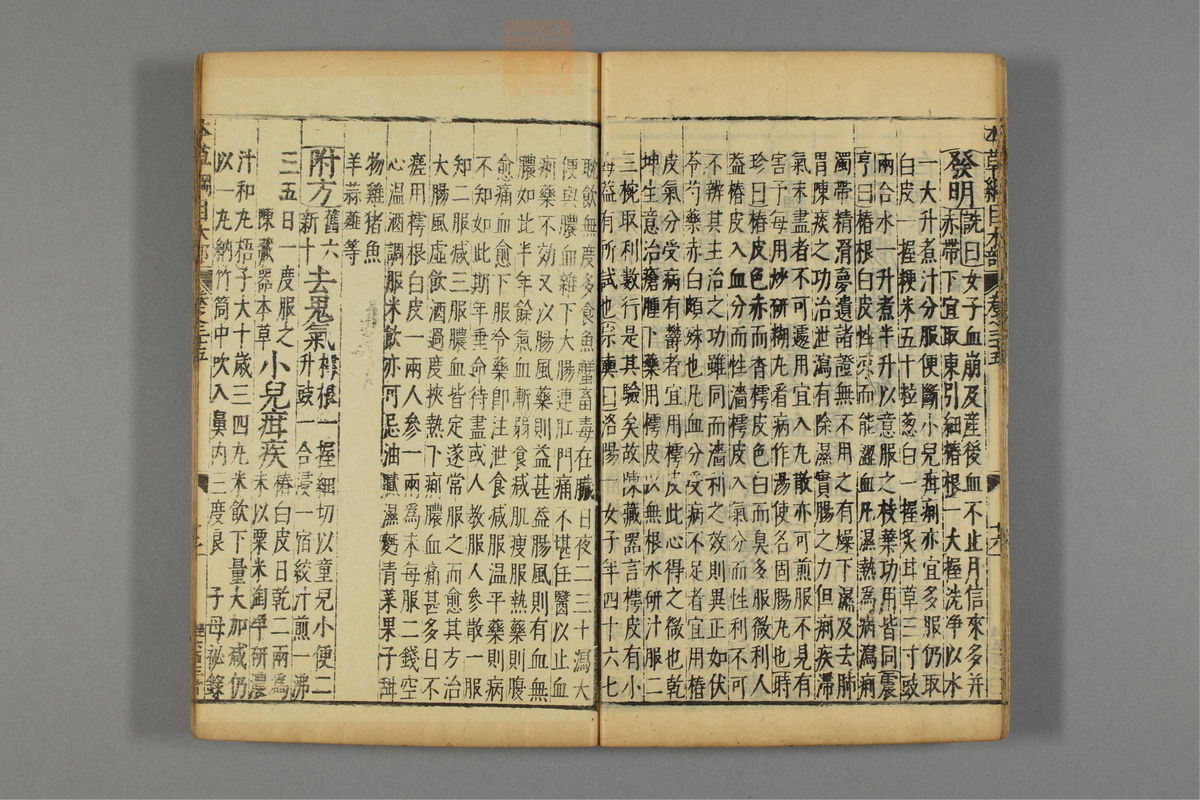 本草綱目木部
發明詵曰女子血崩及産後血不止月信來多并
赤帶下宜取東引細椿根一大握洗淨以水
一大升煮汁分服便斷小兒疳痢亦宜多服仍取
白皮一握粳米五十粒葱白一握炙甘草三寸豉
兩合水一升煮半升以意服之枝葉功用皆同震
亨曰椿根白皮性凉而能澀血凡濕熱爲病瀉痢
濁帶精滑夢遺諸證無不用之有燥下濕及去肺
胃陳痰之功治泄瀉有除濕實腸之力但痢疾滯
氣未盡者不可遽用宜入丸散亦可煎服不見有
害予每用炒研糊丸看病作湯使名固腸丸也時
珍曰椿皮色赤而香樗皮色白而臭多服微利人
蓋椿皮入血分而性濇樗皮入氣分而性利不可
不辨其主治之功雖同而濇利之效則異正如伏
苓芍藥赤白頗殊也凡血分受病不足者宜用椿
皮氣分受病有鬱者宜用樗皮此心得之微也乾
坤生意治瘡腫下藥用樗皮以無根水研汁服二
三椀取利數行是其驗矣故陳藏器言樗皮有小
毒蓋有所試也宗奭曰洛陽一女子年四十六七
耽飲無度多食魚蟹畜毒在臟日夜二三十瀉大
便與膿血雜下大腸連肛門痛不堪任醫以止血
痢藥不效又以腸風藥則益甚蓋腸風則有血無
膿如此半年餘氣血漸弱食減肌瘦服熱藥則腹
愈痛血愈下服冷藥即注泄食減服溫平藥則病
不知如此期年垂命待盡或人教服人參散一服
知二服減三服膿血皆定遂常服之而愈其方治
大腸風虛飲酒過度挾熱下痢膿血痛甚多日不
瘥用樗根白皮一兩人參一兩爲末每服二錢空
心溫酒調服米飲亦可忌油膩濕麪青菜果子甜
物雞猪魚
羊蒜薤等
附方舊六
新十去鬼氣樗根一握細切以童兒小便二
升豉一合浸一宿絞汁煎一沸
三五日一度服之
陳藏器本草小兒疳疾椿白皮日乾二兩爲
末以粟米淘淨研濃
汁和丸梧子大十歲三四丸米飲下量大加減仍
以一丸納竹筒中吹入鼻內三度良 子母祕錄
本草綱目木部